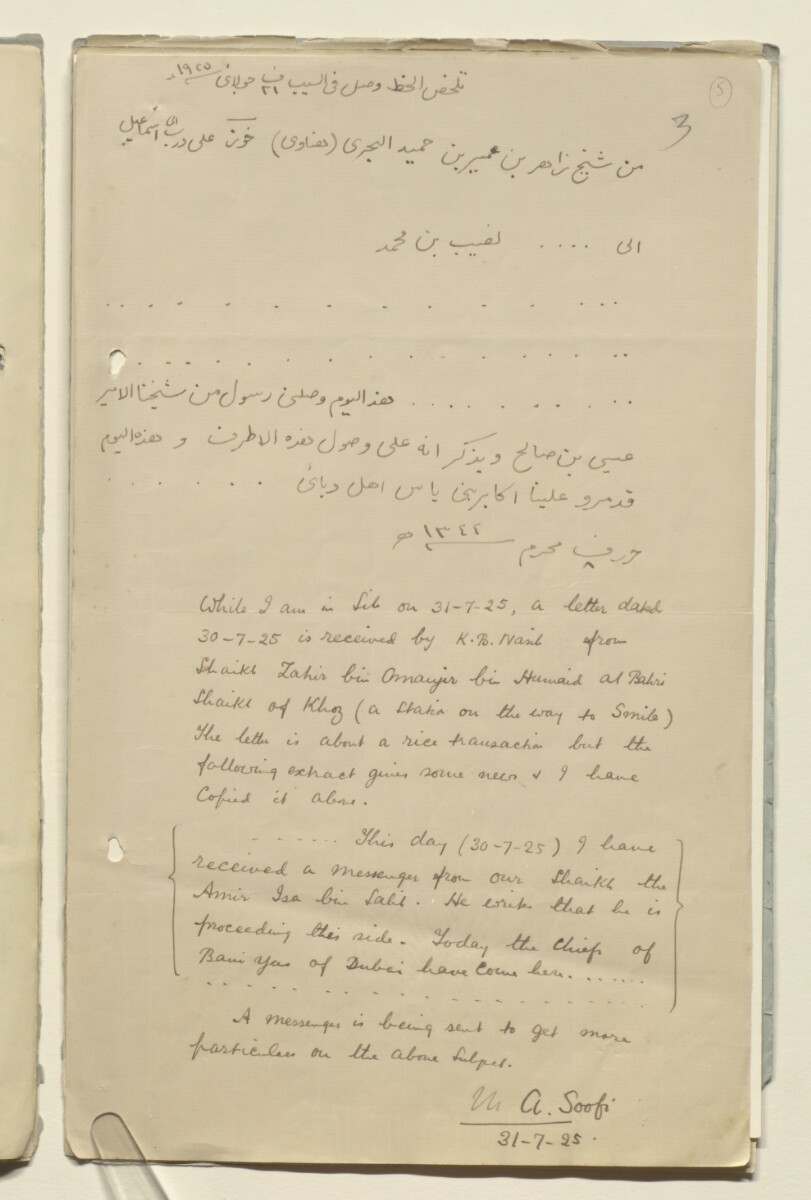 5
3
تلخص الخط وصل في السيب في ٣١ جولائی ١٩٢٥
من شيخ زاهر بن عمير بن حميد البحرى (هناوى) خوض على درب
الى .... نصيب بن محمد
. . . . . . . . . . . .
. . . . . . . . . . . .
. . . . . . . . هذا اليوم وصلنى رسول من شيخنا الامير
عيسى بن صالح ويذكر انه على وصول هذه الاطرف و هذه اليوم
قدمرو علينا اكابر بنى ياس اهل دبائ . . . . . .
محرم ١٣٤٤ هـ
While I am in Sib on 31-7-25, a letter dated
30-7-25 is received by K.B. Nasib from
Shaikh Zahir bin Omaiyir bin Humaid al Bahri
Shaikh of Khoz (a station on the way to Smile)
The letter is about a rice transaction but the
following extract gives some news & I have
Copied it above.
- - - - - - - This day (30-7-25) I have
received a messenger from our Shaikh the
Amir Isa bin Salih. He writes that he is
proceeding this side. Today the Chiefs of
Bani Yas of Dubai have come here. . . . . . .
- - - - - - - - - - - - - - - - - -
A messenger is being sent to get more
particulars on the above subject.
M A. Soofi
31-7-25.